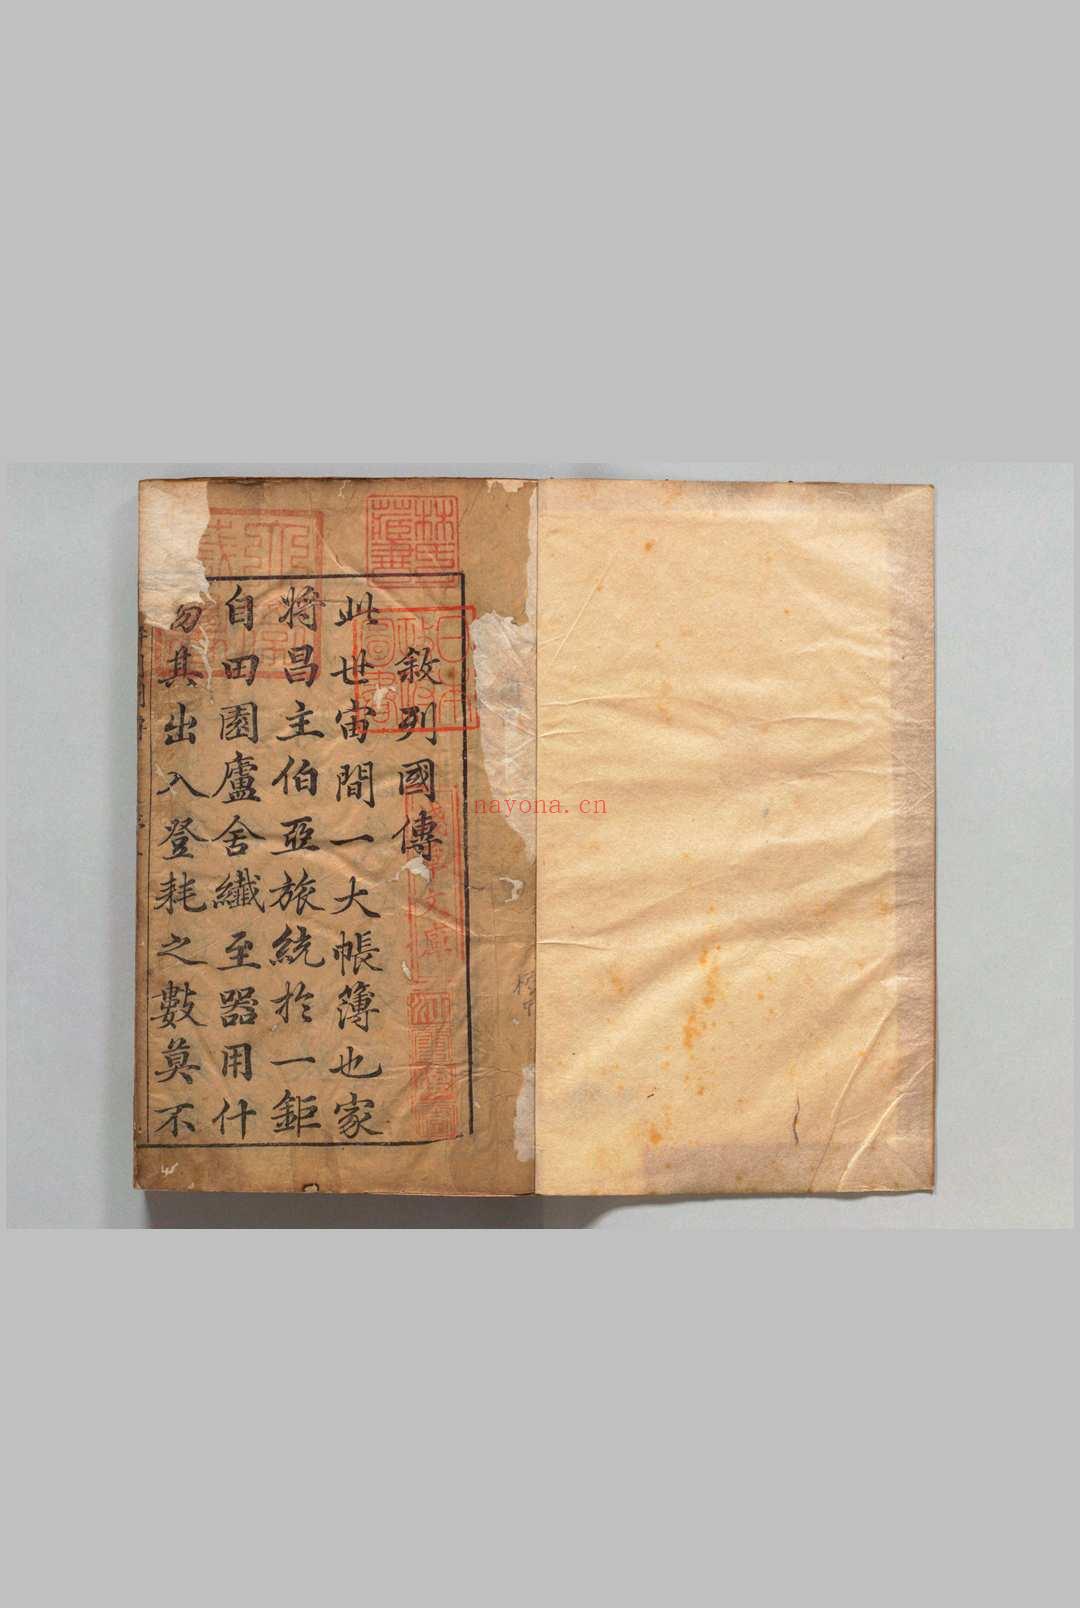 敘列國傳
此世宙間一大帳簿也家
將昌主伯亞旅統於一鉅
自田園廬舍纖至器用什
勿其出入登耗之數莫不
nayona.cn